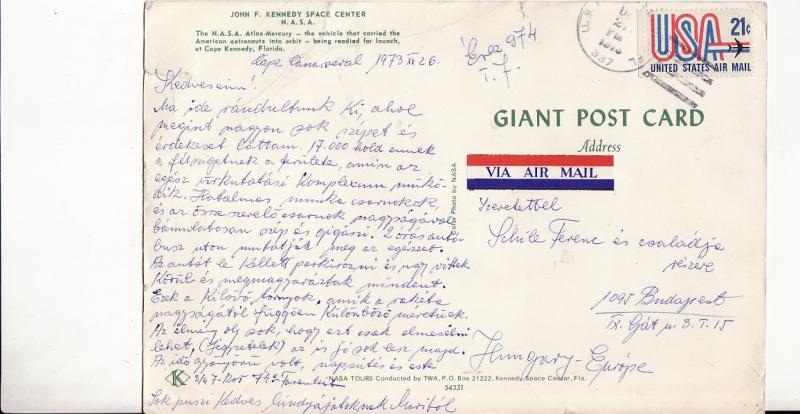 JOHN F. KENNEDY SPACE CENTER
N.A.S.A.
The N.A.S.A. Atlas-Mercury — the vehicle that carried the
American astronauts into orbit — being readied for launch,
at Cape Kennedy, Florida.
Cape Canaveral 1973 XII 26.
Kedveseim!
Ma ide rándultunk ki, ahol
megint nagyon sok szépet és
érdekeset láttam. 17.000 hold ennek
a félszigetnek a területe, amin az
egész űrkutatási Komplexum műkö-
dik. Hatalmas munka csarnokok,
és az összeszerelő csarnok nagyságával
bámulatosan szép és gigászi. 2 órás autó-
busz uton mutatják meg az egészet.
Az autót le kellett parkirozni és ugy vittek
Körül és megmagyaráztak mindent.
Ezek a Kilövő tornyok, amik a rakéta
nagyságától függően Különböző méretüek.
Az élmény oly sok, hogy ezt csak elmesélni
lehet, (Képzeletek) az is jó sok lesz majd.
Az idő gyönyörü volt, napsütés és csak
Sok puszi Kedves Mindnyájatoknak Maritól
T. J.
U.S.
PM
1973
337
USA 21¢
UNITED STATES AIR MAIL
GIANT POST CARD
Address
VIA AIR MAIL
Color Photo by NASA
Szeretettel
Schile Ferenc és családja
részére
1095 Budapest
IX. Gát u 3. I. 15
Hungary - Európe
K
NASA TOURS Conducted by TWA, P.O. Box 21222, Kennedy Space Center, Fla.
54331